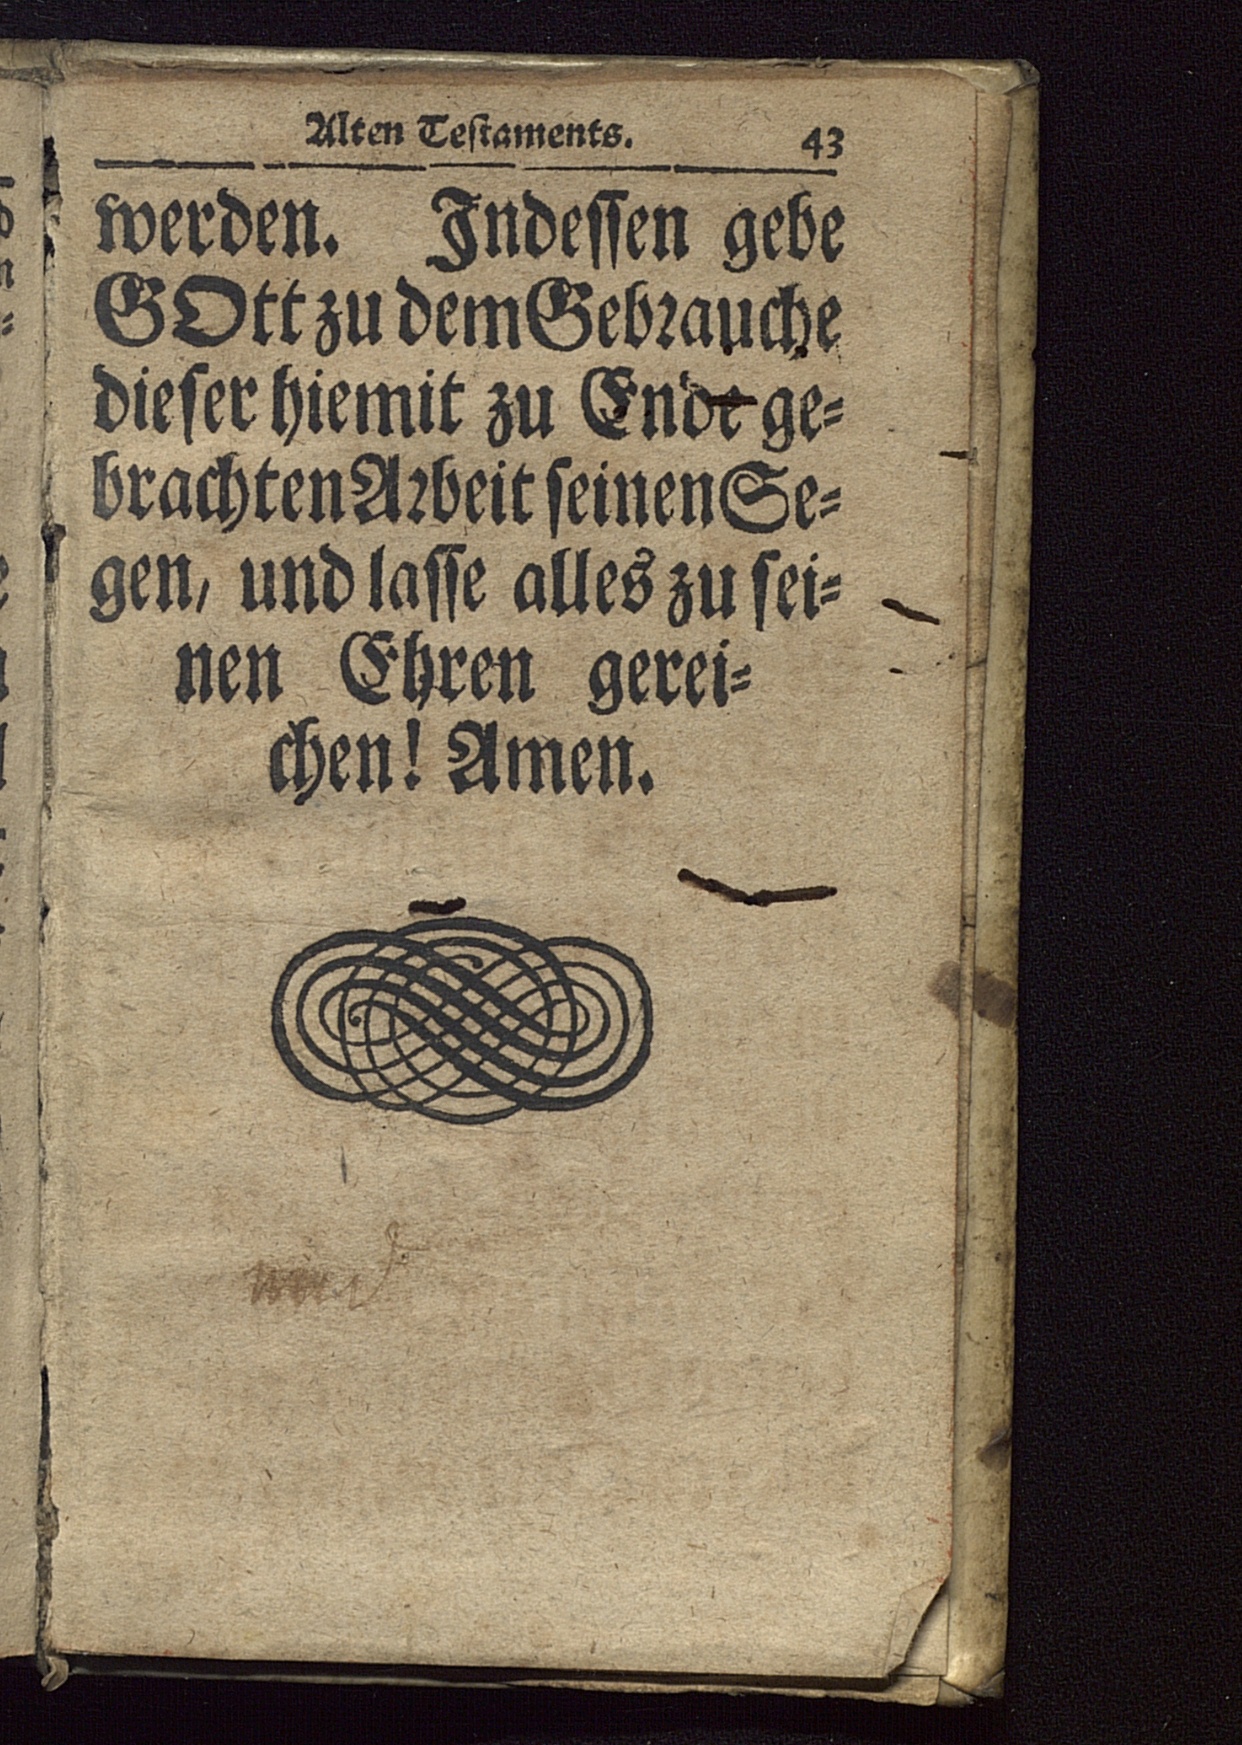 Alten Teſtaments. 43
werden. Indeſſen gebe
GOtt zu dem Gebrauche
dieſer hiemit zu Ende ge⸗
brachten Arbeit ſeinen Se⸗
gen, und laſſe alles zu ſei⸗
nen Ehren gerei⸗
chen! Amen.